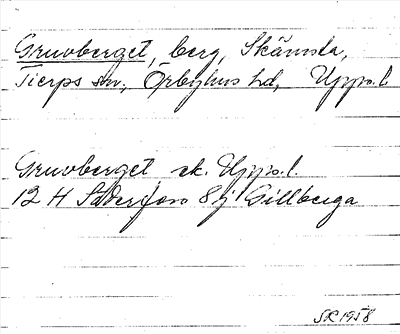 Gruvberget, berg, Skämsta,
Tierps sn, Örbyhus hd, Upps.l.
Gruvberget ek. Upps.l.
12 H Söderfors 8 j Gillberga
SR 1958